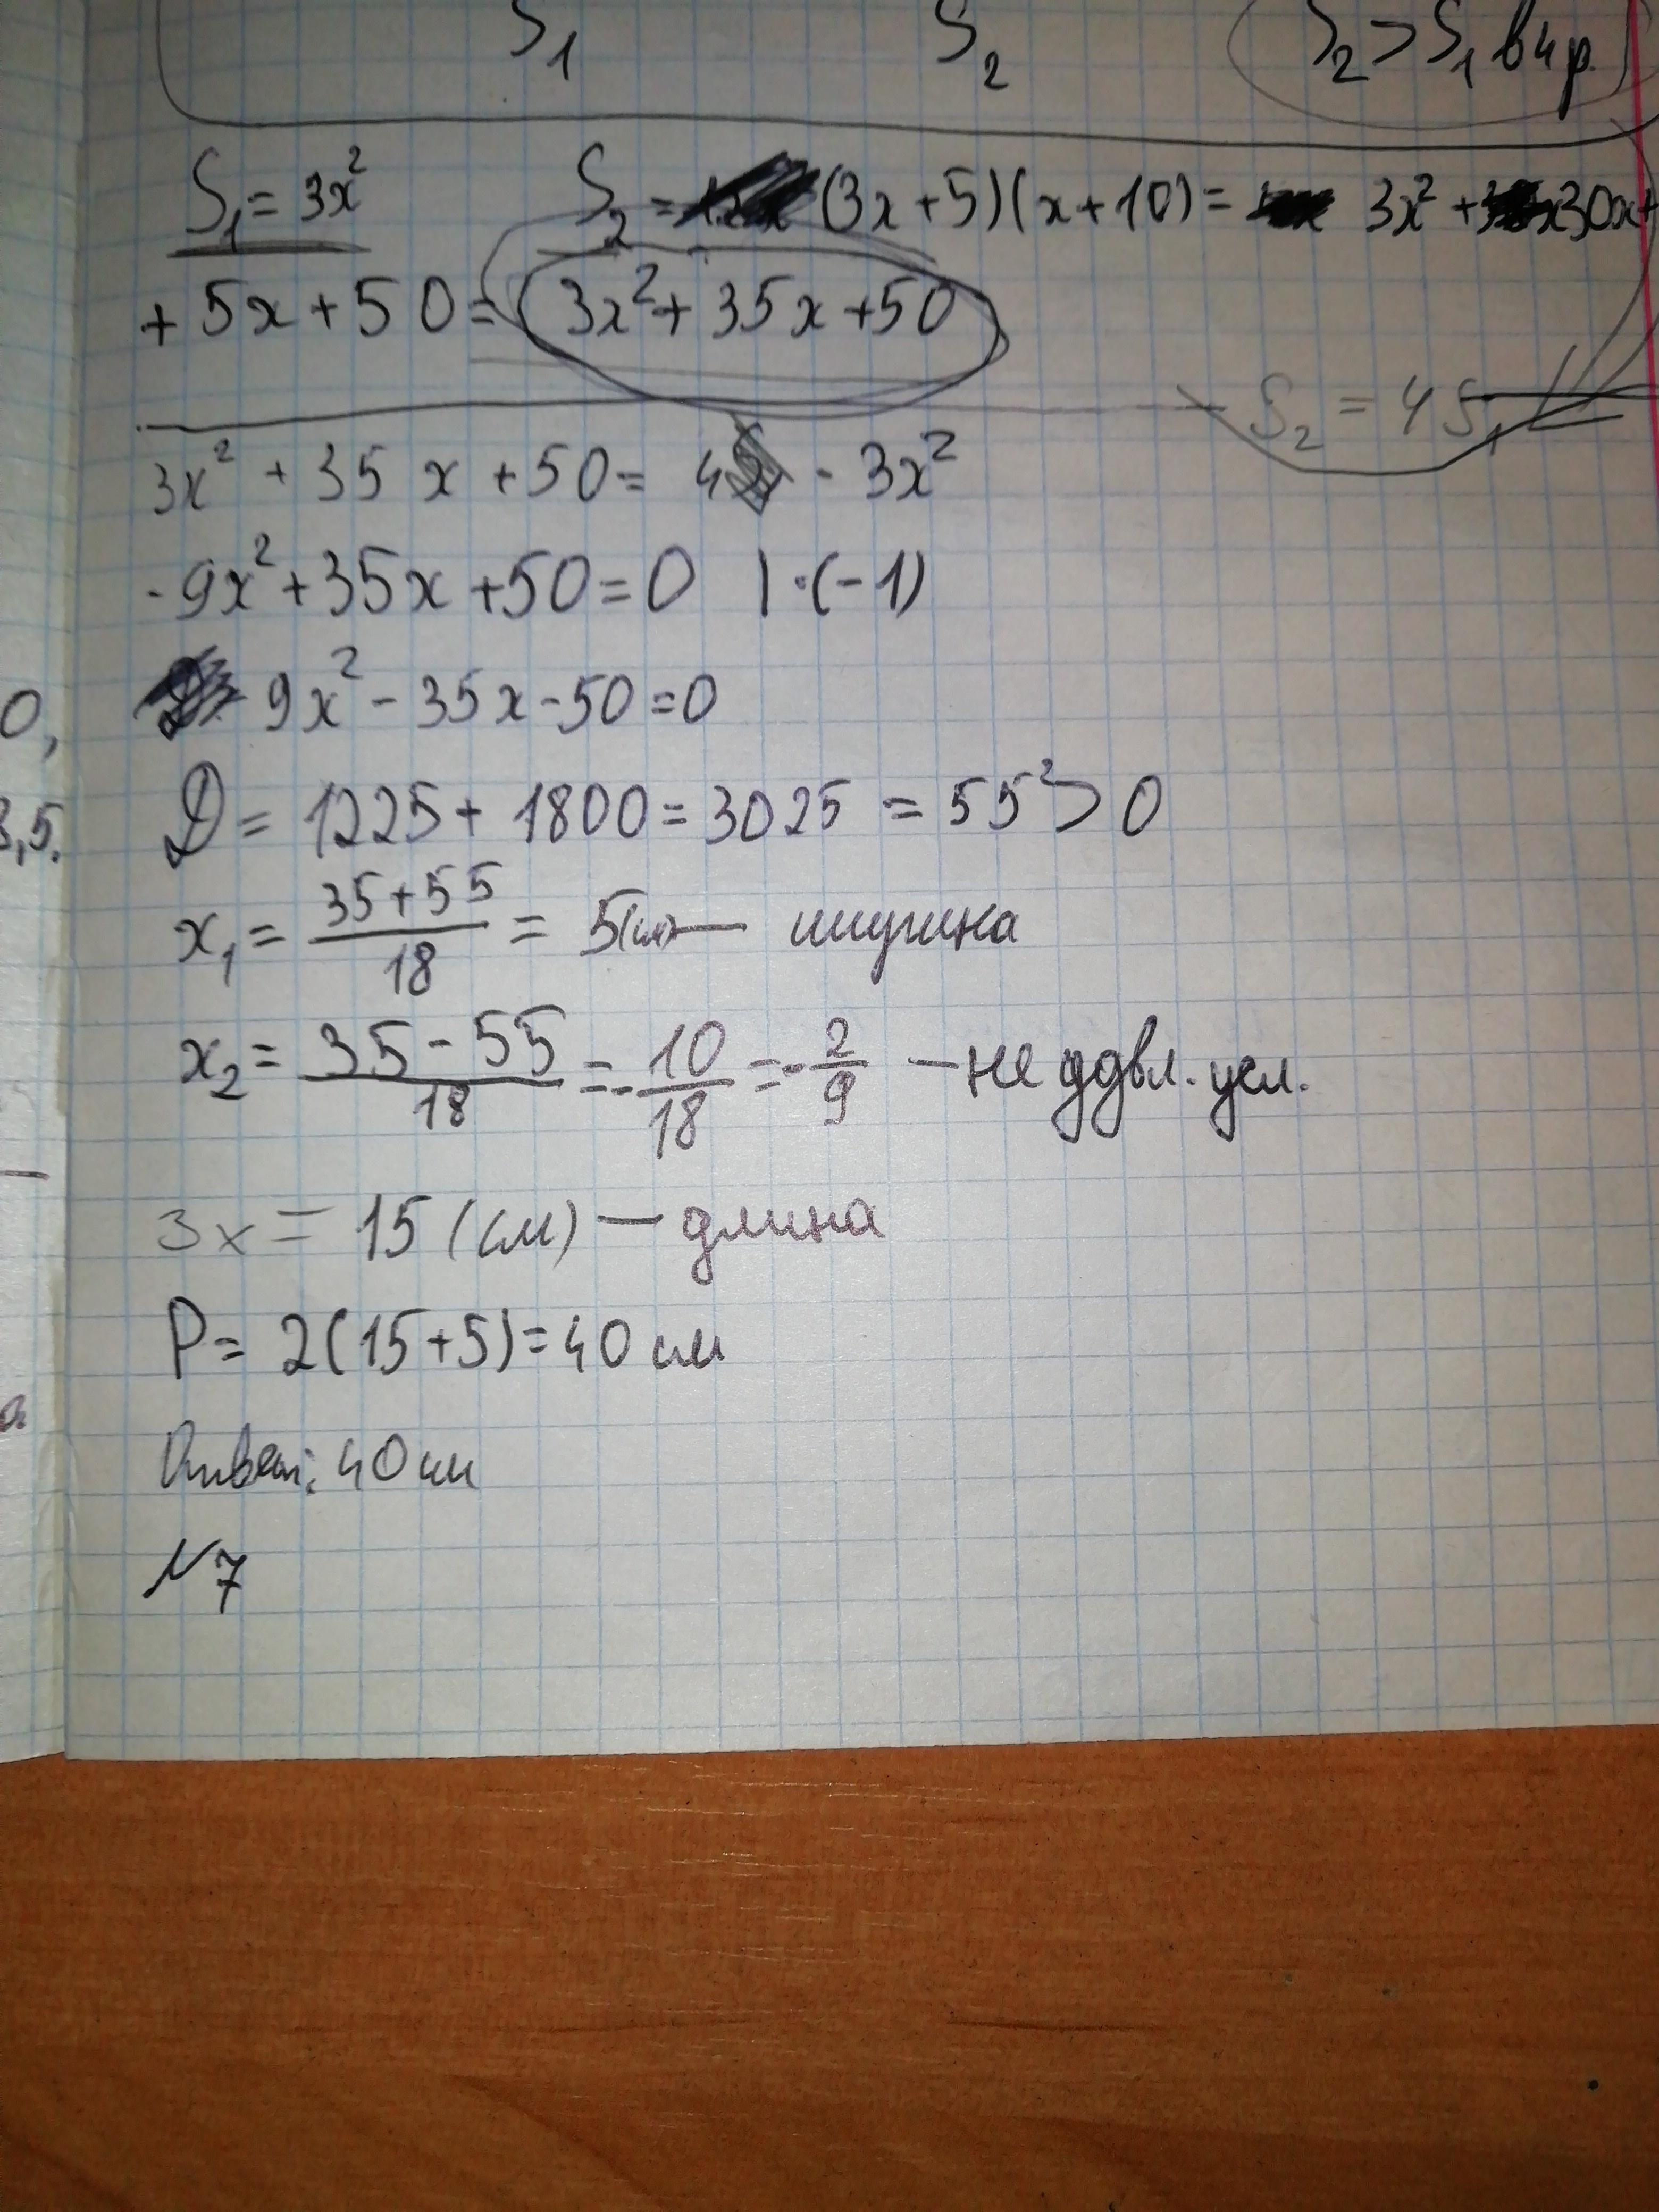 S₁ S₂ S₂ > S₁ в 4 р.
S₁ = 3x² S₂ = (3x+5)(x+10) = 3x² + 30x +
+ 5x + 50 = 3x² + 35x + 50
S₂ = 4S₁
3x² + 35x + 50 = 4 · 3x²
-9x² + 35x + 50 = 0 | · (-1)
9x² - 35x - 50 = 0
0,
D = 1225 + 1800 = 3025 = 55² > 0
3,5.
x₁ = (35+55)/18 = 5(см) — ширина
x₂ = (35-55)/18 = -10/18 = -2/9 — не удвл. усл.
3x = 15 (см) — длина
P = 2(15+5) = 40 см
Ответ: 40 см
№7